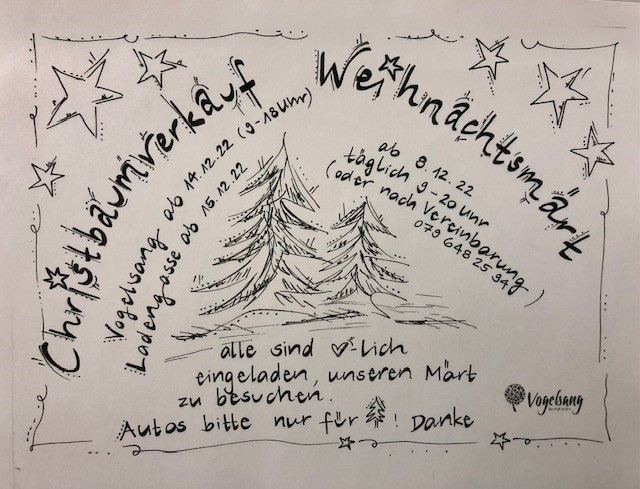 Christbaumverkauf
Vogelsang ab 14.12.22 (9-18 Uhr)
Ladengasse ab 15.12.22
Weihnachtsmärt
ab 8.12.22
täglich 9-20 Uhr
(oder nach Vereinbarung
079 648 25 94)
alle sind ♡-lich
eingeladen, unseren Märt
zu besuchen.
Autos bitte nur für 🌲! Danke
Vogelsang